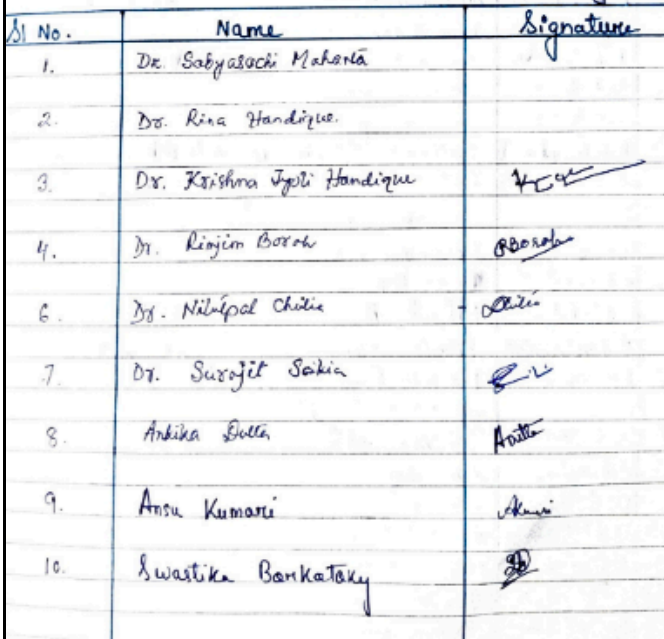 Sl No. Name Signature
1. Dr. Sabyasachi Mahanta
2. Dr. Rina Handique.
3. Dr. Krishna Jyoti Handique
4. Dr. Rimjim Borah RBorah
6. Dr. Nilutpal Chutia
7. Dr. Surajit Saikia
8. Ankika Dutta
9. Ansu Kumari
10. Swastika Borkataky